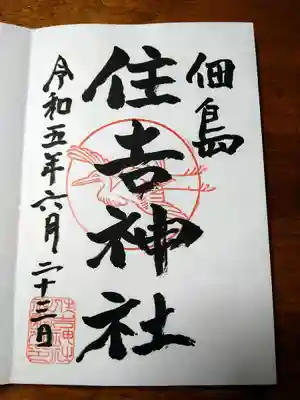 佃島
住吉神社
令和五年六月二十三日